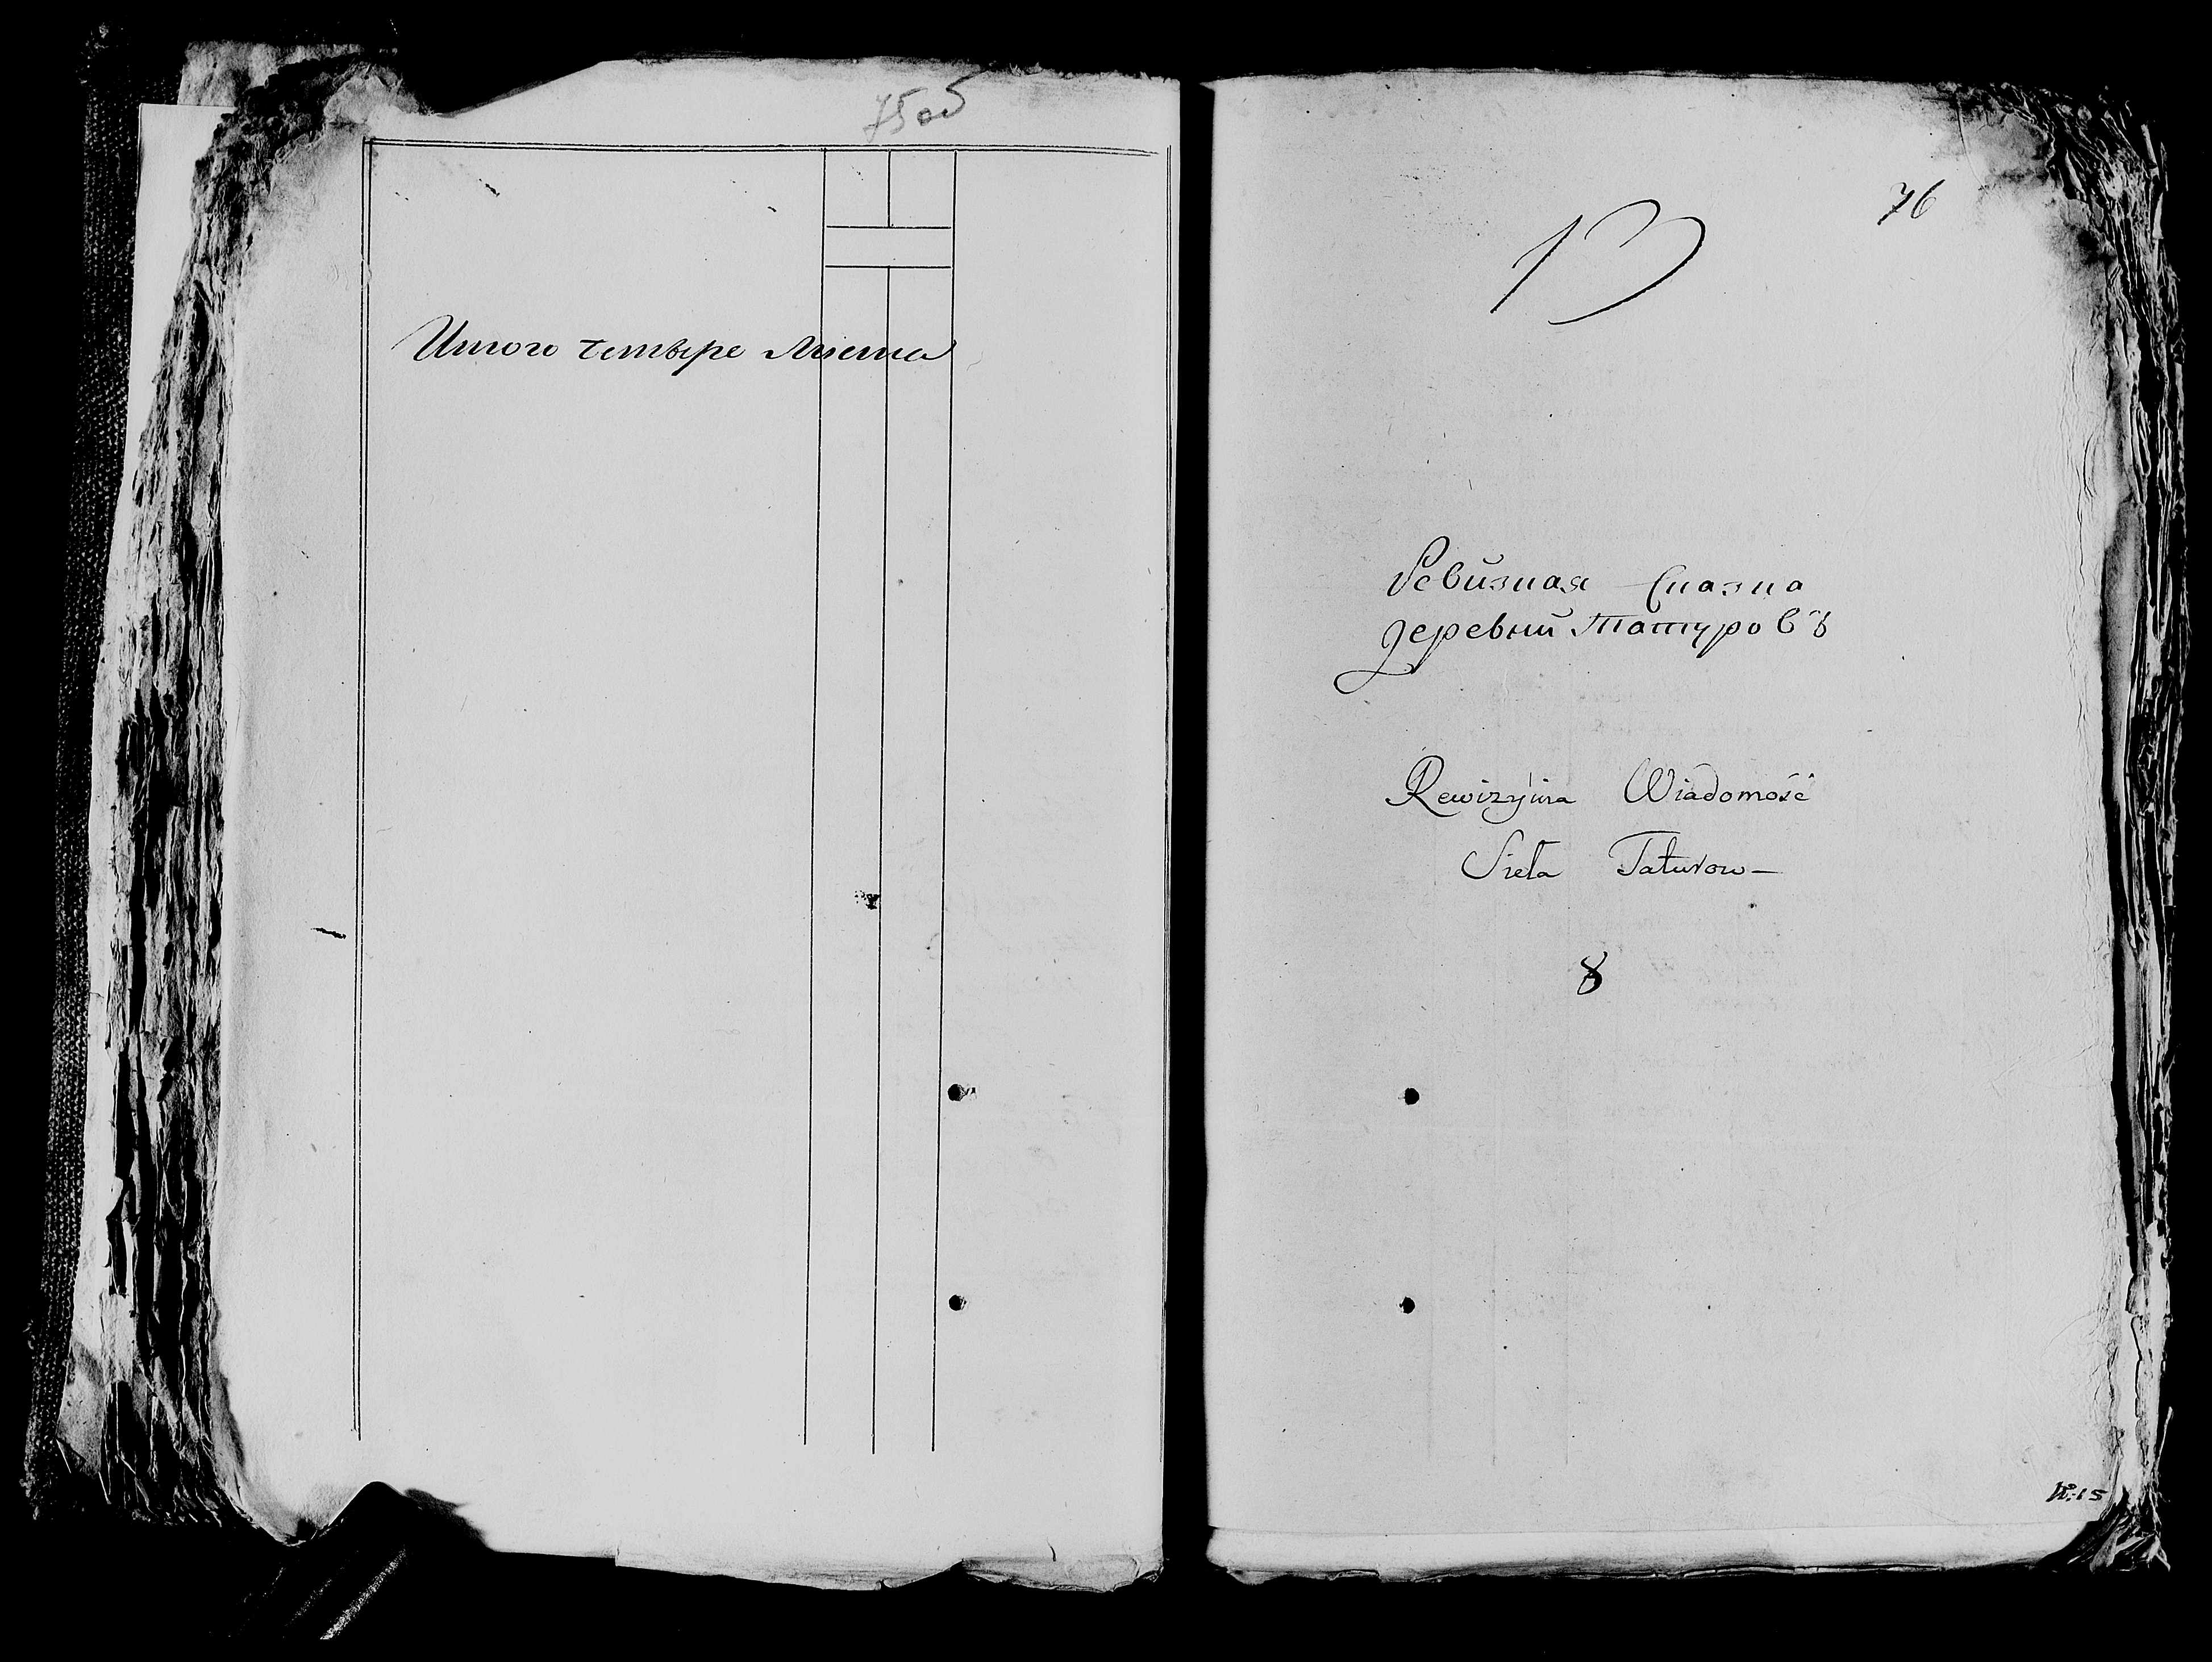 75об
Итого четыре листа
76
13
Ревизная Сказка
деревни Татуровъ
Rewizyina Wiadomość
Sieła Taturow —
8
№:15